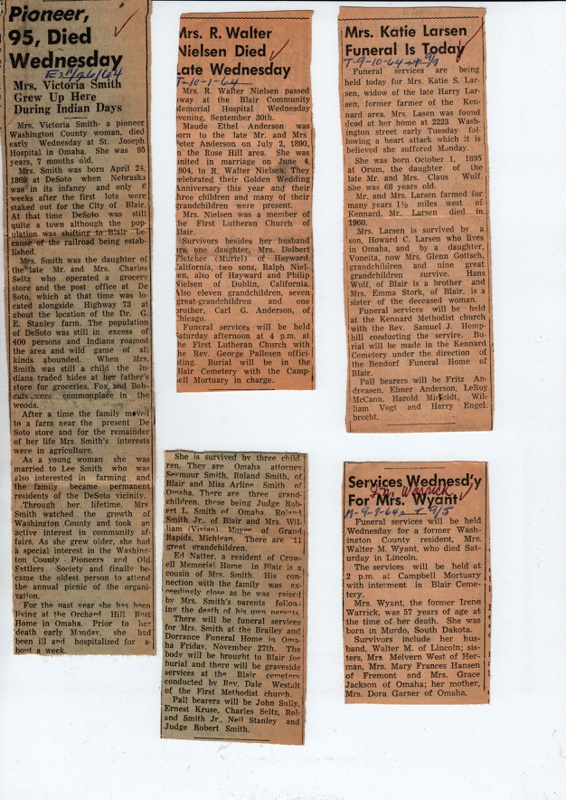 Pioneer,
95, Died
Wednesday
E-11/26/64
Mrs. Victoria Smith
Grew Up Here
During Indian Days
Mrs. Victoria Smith a pioneer
Washington County woman, died
early Wednesday at St. Joseph
Hospital in Omaha. She was 95
years, 7 months old.
Mrs. Smith was born April 24,
1869 at DeSoto when Nebraska
was in its infancy and only 6
weeks after the first lots were
staked out for the City of Blair.
At that time DeSoto was still
quite a town although the pop-
ulation was shifting to Blair be-
cause of the railroad being estab-
lished.
Mrs. Smith was the daughter of
the late Mr. and Mrs. Charles
Seltz who operated a grocery
store and the post office at De
Soto, which at that time was lo-
cated alongside Highway 73 at
about the location of the Dr. G.
E. Stanley farm. The population
of DeSoto was still in excess of
400 persons and Indians roamed
the area and wild game of all
kinds abounded. When Mrs.
Smith was still a child the In-
dians traded hides at her father's
store for groceries. Fox and Bob-
cats were commonplace in the
woods.
After a time the family moved
to a farm near the present De
Soto store and for the remainder
of her life Mrs. Smith's interests
were in agriculture.
As a young woman she was
married to Lee Smith who was
also interested in farming and
the family became permanent
residents of the DeSoto vicinity.
Through her lifetime, Mrs.
Smith watched the growth of
Washington County and took an
active interest in community af-
fairs. As she grew older, she had
a special interest in the Washing-
ton County Pioneers and Old
Settlers Society and finally be-
came the oldest person to attend
the annual picnic of the organi-
zation.
For the past year she has been
living at the Orchard Hill Rest
Home in Omaha. Prior to her
death early Monday, she had
been ill and hospitalized for a-
bout a week.
She is survived by three child-
ren. They are Omaha attorney
Seymour Smith, Roland Smith, of
Blair and Miss Arline Smith of
Omaha. There are three grand-
children, these being Judge Rob-
ert L. Smith of Omaha, Roland
Smith Jr., of Blair and Mrs. Wil-
liam (Vivian) Mayer of Grand
Rapids, Michigan. There are 11
great grandchildren.
Ed Natter, a resident of Crow-
ell Memorial Home in Blair is a
cousin of Mrs. Smith. His con-
nection with the family was ex-
ceedingly close as he was raised
by Mrs. Smith's parents follow-
ing the death of his own parents.
There will be funeral services
for Mrs. Smith at the Brailey and
Dorrance Funeral Home in Oma-
ha Friday, November 27th. The
body will be brought to Blair for
burial and there will be graveside
services at the Blair cemetery
conducted by Rev. Dale Westalt
of the First Methodist church.
Pall bearers will be John Sully,
Ernest Kruse, Charles Seltz, Rol-
and Smith Jr., Neil Stanley and
Judge Robert Smith.
Mrs. R. Walter
Nielsen Died
Late Wednesday
T-10-1-64
Mrs. R. Walter Nielsen passed
away at the Blair Community
Memorial Hospital Wednesday
evening, September 30th.
Maude Ethel Anderson was
born to the late Mr. and Mrs
Peter Anderson on July 2, 1890,
in the Rose Hill area. She was
united in marriage on June 4,
1904, to R. Walter Nielsen. They
celebrated their Golden Wedding
Anniversary this year and their
three children and many of their
grandchildren were present.
Mrs. Nielsen was a member of
the First Lutheran Church of
Blair.
Survivors besides her husband
are one daughter, Mrs. Delbert
Fletcher (Muriel) of Hayward
California, two sons, Ralph Niel-
sen, also of Hayward and Philip
Nielsen of Dublin, California.
Also eleven grandchildren, seven
great-grandchildren and one
brother, Carl G. Anderson, of
Chicago.
Funeral services will be held
Saturday afternoon at 4 p.m. at
the First Lutheran Church with
the Rev. George Pallesen offici-
ating. Burial will be in the
Blair Cemetery with the Camp-
bell Mortuary in charge.
Mrs. Katie Larsen
Funeral Is Today
T-9-10-64
Funeral services are being
held today for Mrs. Katie S. Lar-
sen, widow of the late Harry Lar-
sen, former farmer of the Ken-
nard area. Mrs. Lasen was found
dead at her home at 2223 Wash-
ington street early Tuesday fol-
lowing a heart attack which it is
believed she suffered Monday.
She was born October 1, 1895
at Orum, the daughter of the
late Mr. and Mrs. Claus Wulf.
She was 68 years old.
Mr. and Mrs. Larsen farmed for
many years 1½ miles west of
Kennard. Mr. Larsen died in
1960.
Mrs. Larsen is survived by a
son, Howard C. Larsen who lives
in Omaha, and by a daughter,
Voneita, now Mrs. Glenn Gottsch,
grandchildren and nine great
grandchildren survive. Hans
Wulf, of Blair is a brother and
Mrs. Emma Stork, of Blair, is a
sister of the deceased woman.
Funeral services will be held
at the Kennard Methodist church
with the Rev. Samuel J. Hemp-
hill conducting the servire. Bu-
rial will be made in the Kennard
Cemetery under the direction of
the Bendorf Funeral Home of
Blair.
Pall bearers will be Fritz An-
dreasen, Elmer Anderson, LeRoy
McCann, Harold Misfeldt, Wil-
liam Vogt and Harry Engel-
brecht.
Services Wednesd'y
Irene Warrick
For Mrs. Wyant
Funeral services will be held
Wednesday for a former Wash-
ington County resident, Mrs.
Walter M. Wyant, who died Sat-
urday in Lincoln.
The services will be held at
2 p.m. at Campbell Mortuary
with interment in Blair Ceme-
tery.
Mrs. Wyant, the former Irene
Warrick, was 57 years of age at
the time of her death. She was
born in Murdo, South Dakota.
Survivors include her hus-
band, Walter M. of Lincoln; sis-
ters, Mrs. Melvern West of Her-
man, Mrs. Mary Frances Hansen
of Fremont and Mrs. Grace
Jackson of Omaha; her mother,
Mrs. Dora Garner of Omaha.